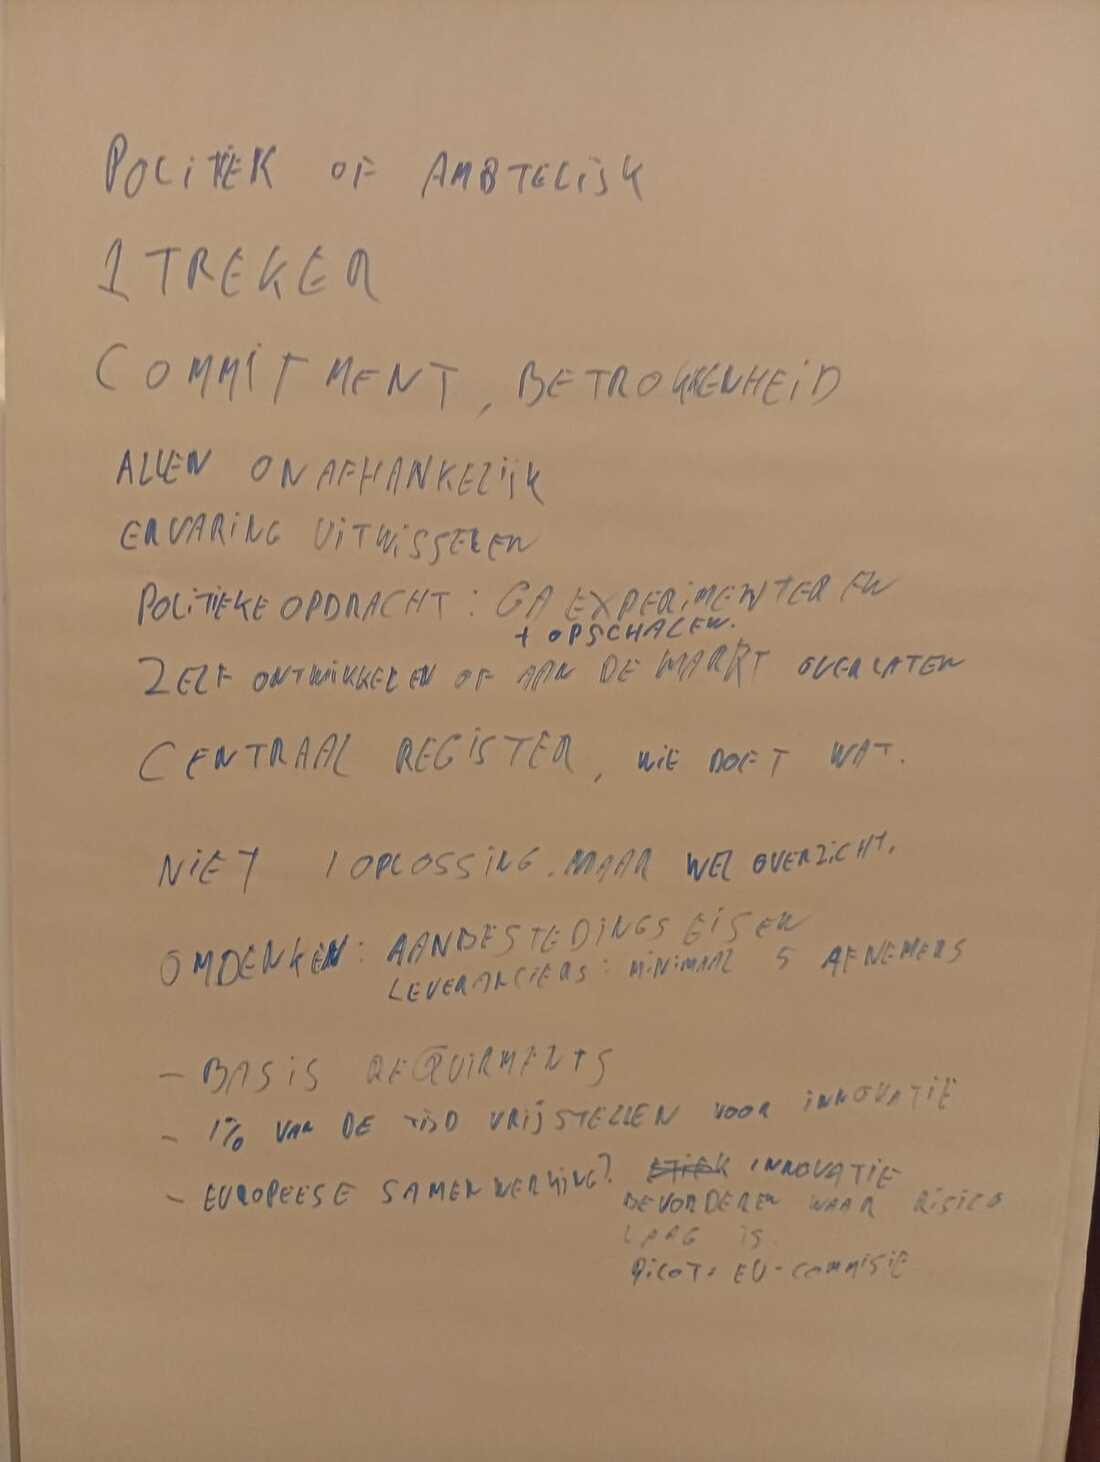 POLITIEK OF AMBTELIJK
1 TREKER
COMMITMENT, BETROKKENHEID
ALLEN ONAFHANKELIJK
ERVARING UITWISSELEN
POLITIEKE OPDRACHT: GA EXPERIMENTEREN
+ OPSCHALEN.
ZELF ONTWIKKELEN OF AAN DE MARKT OVERLATEN
CENTRAAL REGISTER, WIE DOET WAT.
NIET 1 OPLOSSING. MAAR WEL OVERZICHT.
OMDENKEN: AANBESTEDINGSEISEN
LEVERANCIERS: MINIMAAL 5 AFNEMERS
- BASIS REQUIRMENTS
- 1% VAN DE TIJD VRIJSTELLEN VOOR INNOVATIE
- EUROPEESE SAMENWERKING? INNOVATIE
BEVORDEREN WAAR RISICO
LAAG IS.
PILOT. EU-COMMISIE